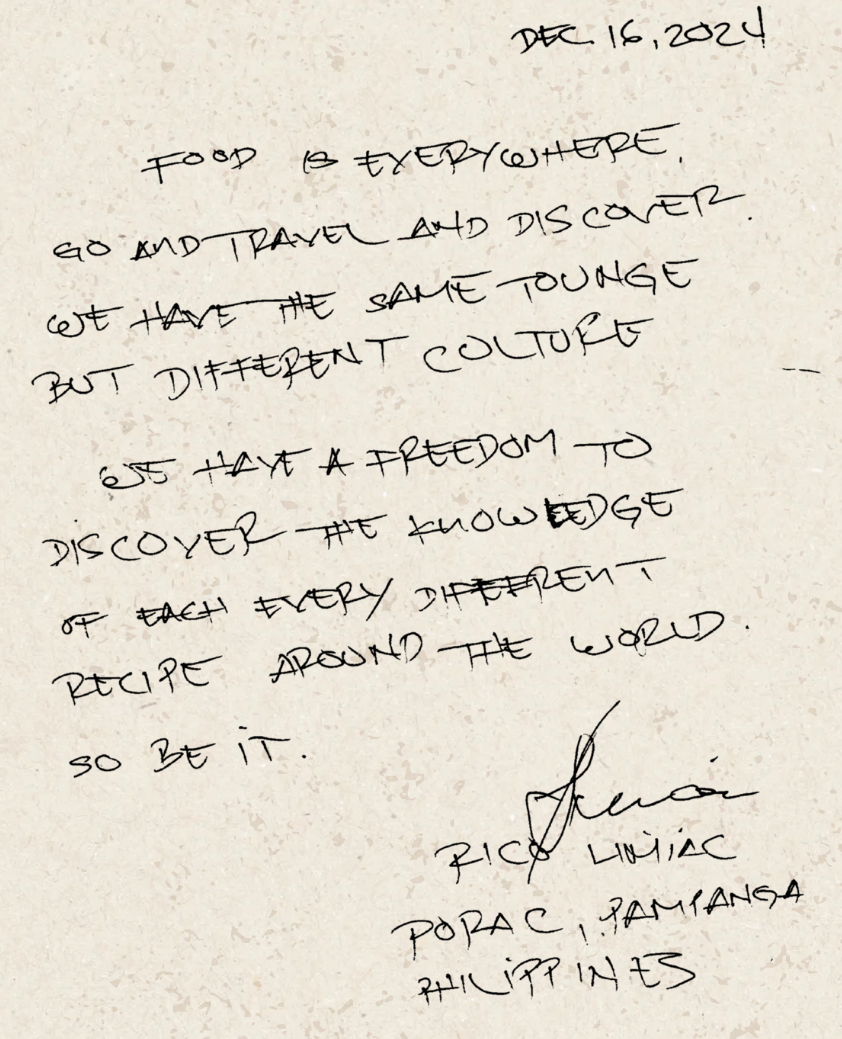 DEC. 16, 2024
FOOD IS EVERYWHERE.
GO AND TRAVEL AND DISCOVER.
WE HAVE THE SAME TOUNGE
BUT DIFFERENT COLTURE
WE HAVE A FREEDOM TO
DISCOVER THE KNOWLEDGE
OF EACH EVERY DIFFERENT
RECIPE AROUND THE WORLD.
SO BE IT.
RICO
PORAC, PAMPANGA
PHILIPPINES